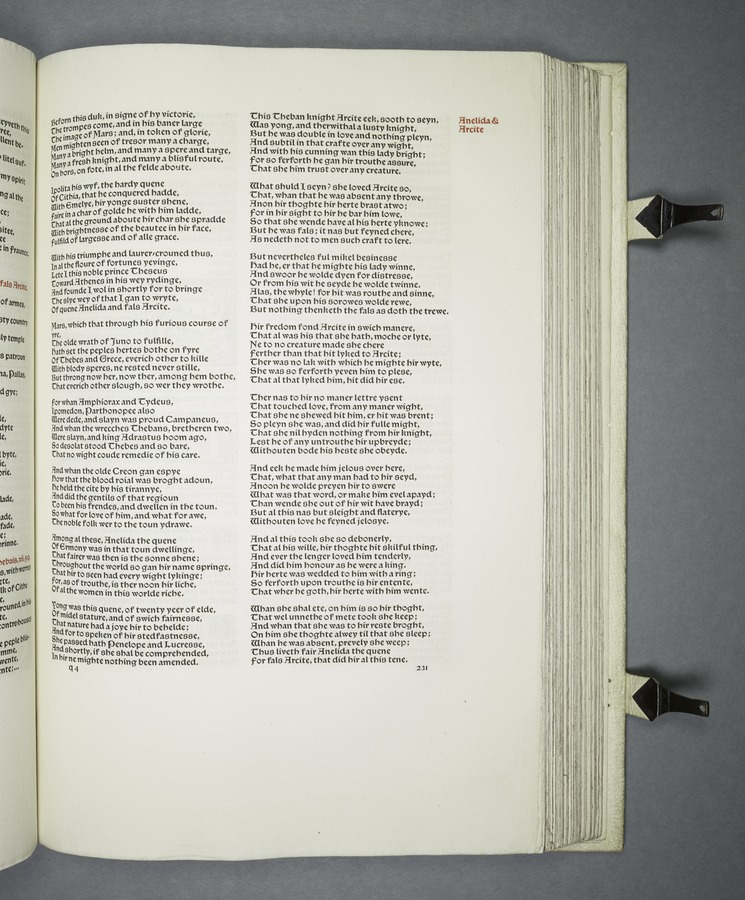 Beforn this duk, in signe of hy victorie,
The trompes come, and in his baner large
The image of Mars; and, in token of glorie,
Men mighten seen of tresor many a charge,
Many a bright helm, and many a spere and targe,
Many a fresh knight, and many a blisful route,
On hors, on fote, in al the felde aboute.
Ipolita his wyf, the hardy quene
Of Cithia, that he conquered hadde,
With Emelye, hir yonge suster shene,
Faire in a char of golde he with him ladde,
That al the ground aboute hir char she spradde
With brightnesse of the beautee in hir face,
Fulfild of largesse and of alle grace.
With his triumphe and laurer-crouned thus,
In al the floure of fortunes yevinge,
Lete I this noble prince Theseus
Toward Athenes in his wey rydinge,
And founde I wol in shortly for to bringe
The slye wey of that I gan to wryte,
Of quene Anelida and fals Arcite.
Mars, which that through his furious course of
yre,
The olde wrath of Juno to fulfille,
Hath set the peples hertes bothe on fyre
Of Thebes and Grece, everich other to kille
With blody speres, ne rested never stille,
But throng now her, now ther, among hem bothe,
That everich other slough, so wer they wrothe.
For whan Amphiorax and Tydeus,
Ipomedon, Parthonopee also
Were dede, and slayn was proud Campaneus,
And whan the wrecches Thebans, bretheren two,
Were slayn, and king Adrastus hoom ago,
So desolat stood Thebes and so bare,
That no wight coude remedie of his care.
And whan the olde Creon gan espye
How that the blood roial was broght adoun,
He held the cite by his tirannye,
And did the gentils of that regioun
To been his frendes, and dwellen in the toun.
So what for love of him, and what for awe,
The noble folk wer to the toun ydrawe.
Among al these, Anelida the quene
Of Ermony was in that toun dwellinge,
That fairer was then is the sonne shene;
Throughout the world so gan hir name springe,
That hir to seen had every wight lykinge;
For, as of trouthe, is ther noon hir liche,
Of al the women in this worlde riche.
Yong was this quene, of twenty yeer of elde,
Of midel stature, and of swich fairnesse,
That nature had a joye hir to behelde;
And for to speken of hir stedfastnesse,
She passed hath Penelope and Lucresse,
And shortly, if she shal be comprehended,
In hir ne mighte nothing been amended.
q 4
This Theban knight Arcite eek, sooth to seyn,
Was yong, and therwithal a lusty knight,
But he was double in love and nothing pleyn,
And subtil in that crafte over any wight,
And with his cunning wan this lady bright;
For so ferforth he gan hir trouthe assure,
That she him trust over any creature.
What shuld I seyn? she loved Arcite so,
That, whan that he was absent any throwe,
Anon hir thoghte hir herte brast atwo;
For in hir sight to hir he bar him lowe,
So that she wende have al his herte yknowe;
But he was fals; it nas but feyned chere,
As nedeth not to men such craft to lere.
But nevertheles ful mikel besinesse
Had he, er that he mighte his lady winne,
And swoor he wolde dyen for distresse,
Or from his wit he seyde he wolde twinne.
Alas, the whyle! for hit was routhe and sinne,
That she upon his sorowes wolde rewe,
But nothing thenketh the fals as doth the trewe.
Hir fredom fond Arcite in swich manere,
That al was his that she hath, moche or lyte,
Ne to no creature made she chere
Ferther than that hit lyked to Arcite;
Ther was no lak with which he mighte hir wyte,
She was so ferforth yeven him to plese,
That al that lyked him, hit did hir ese.
Ther nas to hir no maner lettre ysent
That touched love, from any maner wight,
That she ne shewed hit him, er hit was brent;
So pleyn she was, and did hir fulle might,
That she nil hyden nothing from hir knight,
Lest he of any untrouthe hir upbreyde;
Withouten bode his heste she obeyde.
And eek he made him jelous over here,
That, what that any man had to hir seyd,
Anoon he wolde preyen hir to swere
What was that word, or make him evel apayd;
Than wende she out of hir wit have brayd;
But al this nas but sleight and flaterye,
Withouten love he feyned jelosye.
And al this took she so debonerly,
That al his wille, hir thoghte hit skilful thing,
And ever the lenger loved him tenderly,
And did him honour as he were a king.
Hir herte was wedded to him with a ring;
So ferforth upon trouthe is hir entente,
That wher he goth, hir herte with him wente.
Whan she shal ete, on him is so hir thoght,
That wel unnethe of mete took she keep;
And whan that she was to hir reste broght,
On him she thoghte alwey til that she sleep;
Whan he was absent, prevely she weep;
Thus liveth fair Anelida the quene
For fals Arcite, that did hir al this tene.
231
Anelida &
Arcite